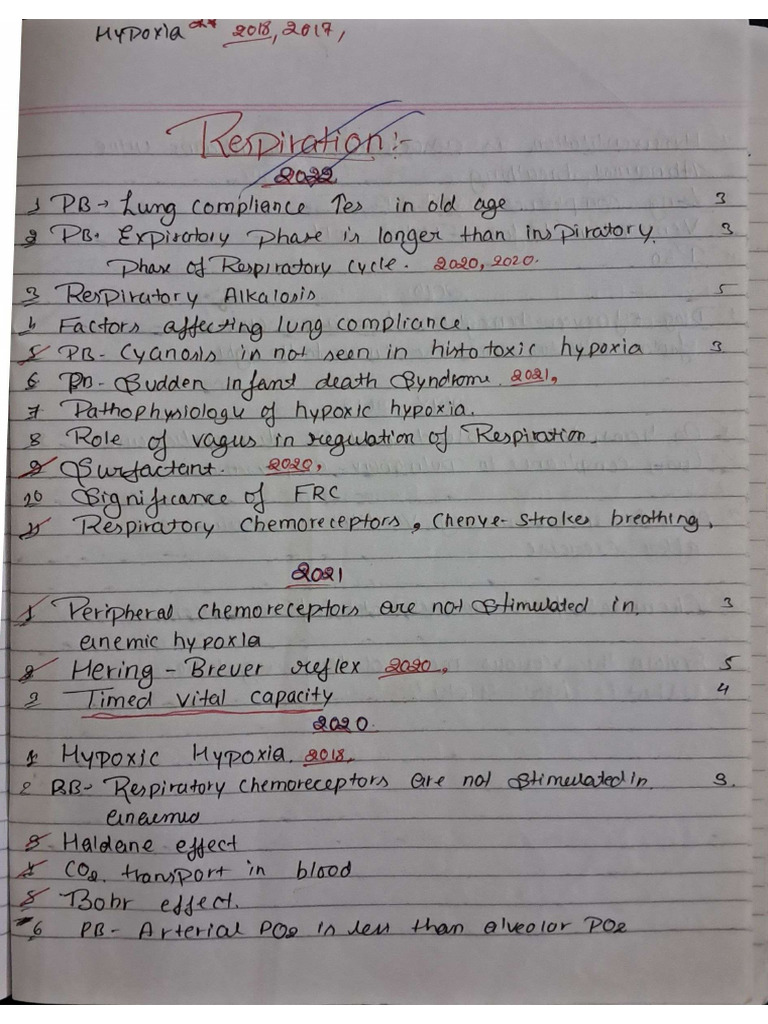 Hypoxia ** 2018, 2017,
Respiration:-
2022
1 PB → Lung compliance ↑es in old age 3
2 PB. Expiratory phase is longer than inspiratory. 3
Phase of Respiratory cycle. 2020, 2020.
3 Respiratory Alkalosis 5
4 Factors affecting lung compliance.
5 PB- Cyanosis in not seen in histotoxic hypoxia 3
6 PB- Sudden infant death Syndrome. 2021,
7 Pathophysiology of hypoxic hypoxia.
8 Role of vagus in regulation of Respiration.
9 Surfactant. 2020,
10 Significance of FRC
11 Respiratory chemoreceptors, Chenye-strokes breathing.
2021
1 Peripheral chemoreceptors are not stimulated in. 3
anemic hypoxia
2 Hering-Breuer reflex 2020. 5
3 Timed vital capacity 4
2020.
1 Hypoxic Hypoxia. 2018.
2 BB- Respiratory chemoreceptors are not stimulated in. 3.
anaemia
3 Haldane effect
4 CO2. transport in blood
5 Bohr effect.
6 PB- Arterial PO2 in less than alveolar PO2